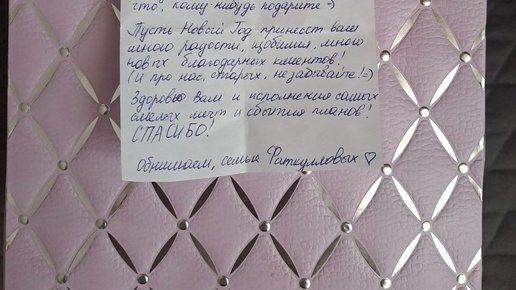 сто, кому-нибудь подарите =)
Пусть Новый Год принесёт вам
много радости, изобилия, много
новых благодарных клиентов!
(И про нас, старых, не забывайте! =)
Здоровья вам и исполнения самых
смелых мечт и сбытия планов!
СПАСИБО!
Обнимаем, семья Фаткулловых ♡